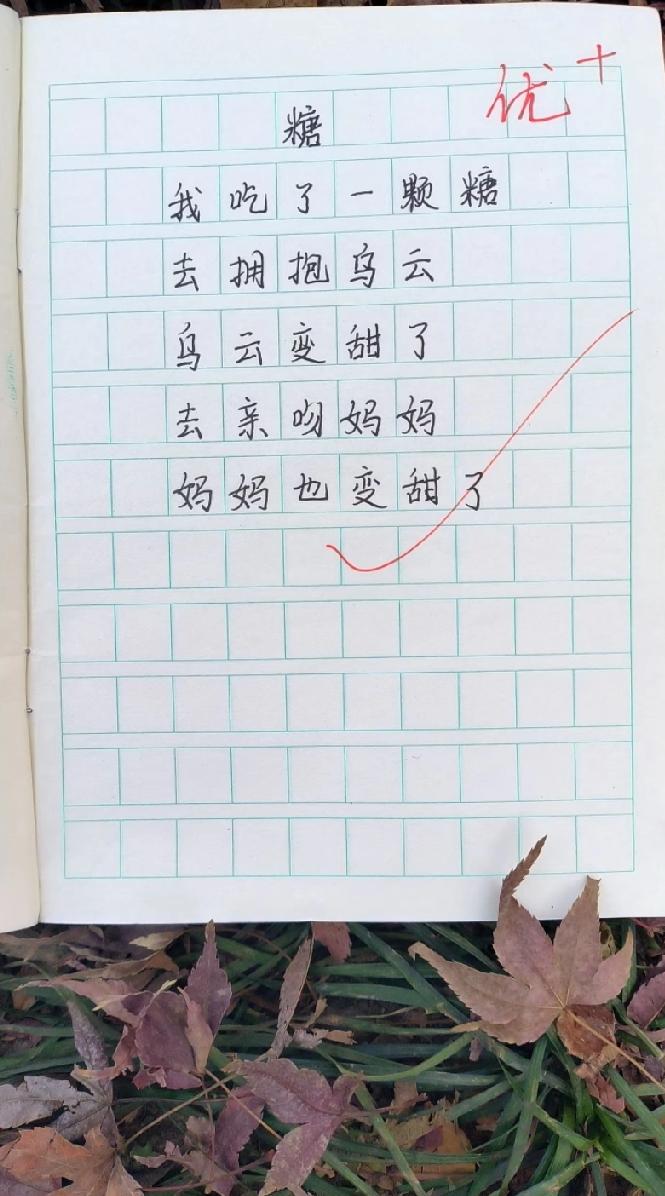 优+
糖
我吃了一颗糖
去拥抱乌云
乌云变甜了
去亲吻妈妈
妈妈也变甜了